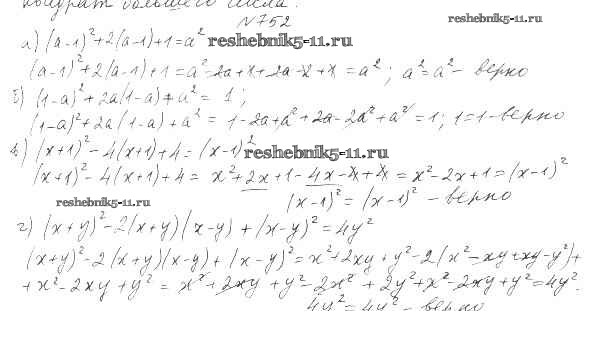 квадрат большего числа.
№752
reshebnik5-11.ru
а) (a-1)²+2(a-1)+1=a²
reshebnik5-11.ru
(a-1)²+2(a-1)+1=a²-2a+1+2a-2+1=a²; a²=a² - верно
б) (1-a)²+2a(1-a)+a²=1;
(1-a)²+2a(1-a)+a²=1-2a+a²+2a-2a²+a²=1; 1=1-верно
в) (x+1)²-4(x+1)+4=(x-1)²
reshebnik5-11.ru
(x+1)²-4(x+1)+4=x²+2x+1-4x-4+4=x²-2x+1=(x-1)²
reshebnik5-11.ru
(x-1)²=(x-1)² - верно
г) (x+y)²-2(x+y)(x-y)+(x-y)²=4y²
(x+y)²-2(x+y)(x-y)+(x-y)²=x²+2xy+y²-2(x²-xy+xy-y²)+
+x²-2xy+y²=x²+2xy+y²-2x²+2y²+x²-2xy+y²=4y².
4y²=4y² - верно